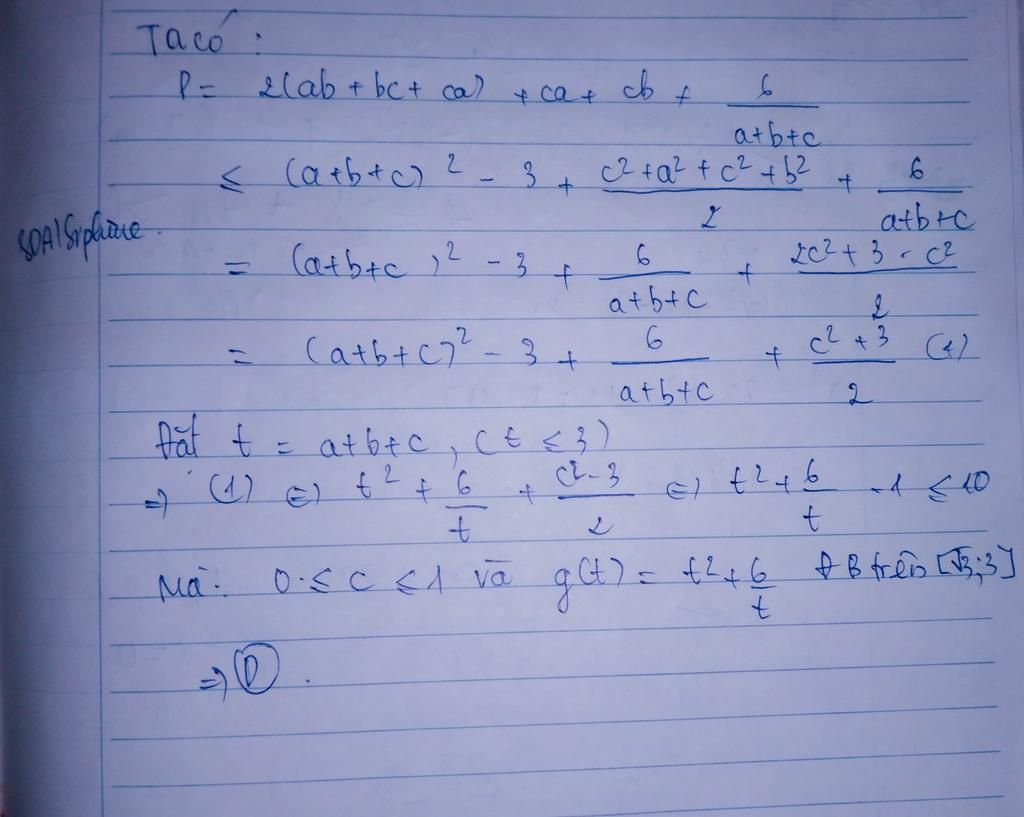 Ta có :
P = 2(ab + bc + ca) + ca + cb + 6/(a+b+c)
≤ (a+b+c)² - 3 + (c²+a²+c²+b²)/2 + 6/(a+b+c)
= (a+b+c)² - 3 + 6/(a+b+c) + (2c²+3-c²)/2
= (a+b+c)² - 3 + 6/(a+b+c) + (c²+3)/2 (1)
Đặt t = a+b+c, (t ≤ 3)
=> (1) <=> t² + 6/t + (c²-3)/2 <=> t² + 6/t - 1 ≤ 10
Mà: 0 ≤ c ≤ 1 và g(t) = t² + 6/t ĐB trên [√3;3]
=> D .